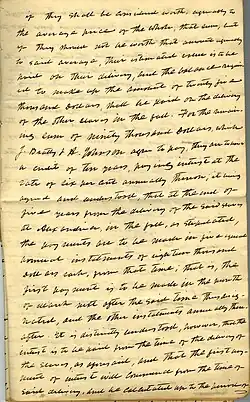 of they shall be considered worth, equally to
the average price of the whole, that sum, but
if they should not be worth that amount equally
to said average, their estimated value is to be
paid on their delivery, and the balance requir-
ed to make up the amount of twenty five
thousand dollars shall be paid on the delivery
of the other slaves in the fall. For the remain-
ing sum of ninety thousand dollars, which
J. Beatty & H. Johnson agree to pay, they are to have
a credit of ten years, paying interest at the
rate of six per cent annually thereon, it being
agreed and understood, that at the end of
five years from the delivery of the said slaves
at Alexandria, in the fall, as stipulated,
the payments are to be made in five equal
annual instalments of eighteen thousand
dollars each, from that time; that is, the
first payment is to be made in the month
of March next after the said time thus desig-
nated, and the other instalments annually there-
after. It is distinctly understood, however, that the
interest is to be paid from the time of the delivery of
the slaves, as aforesaid, and that the first pay-
ment of interest will commence from the time of
said delivery, and be calculated up to the period of